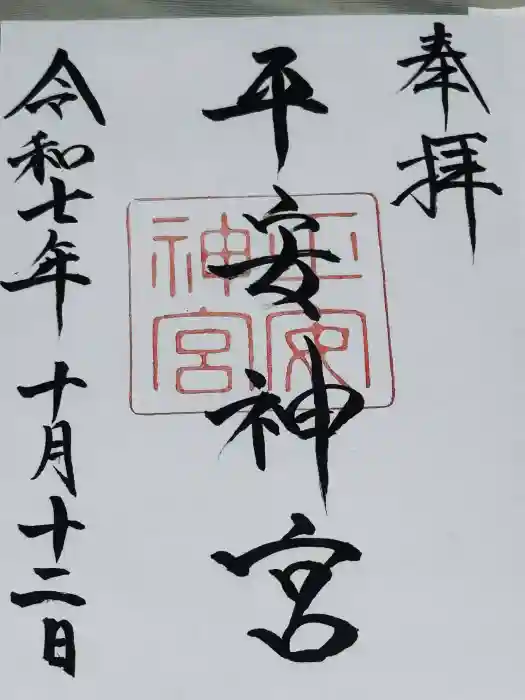 奉拝
平安神宮
平安
神宮
令和七年 十月十二日